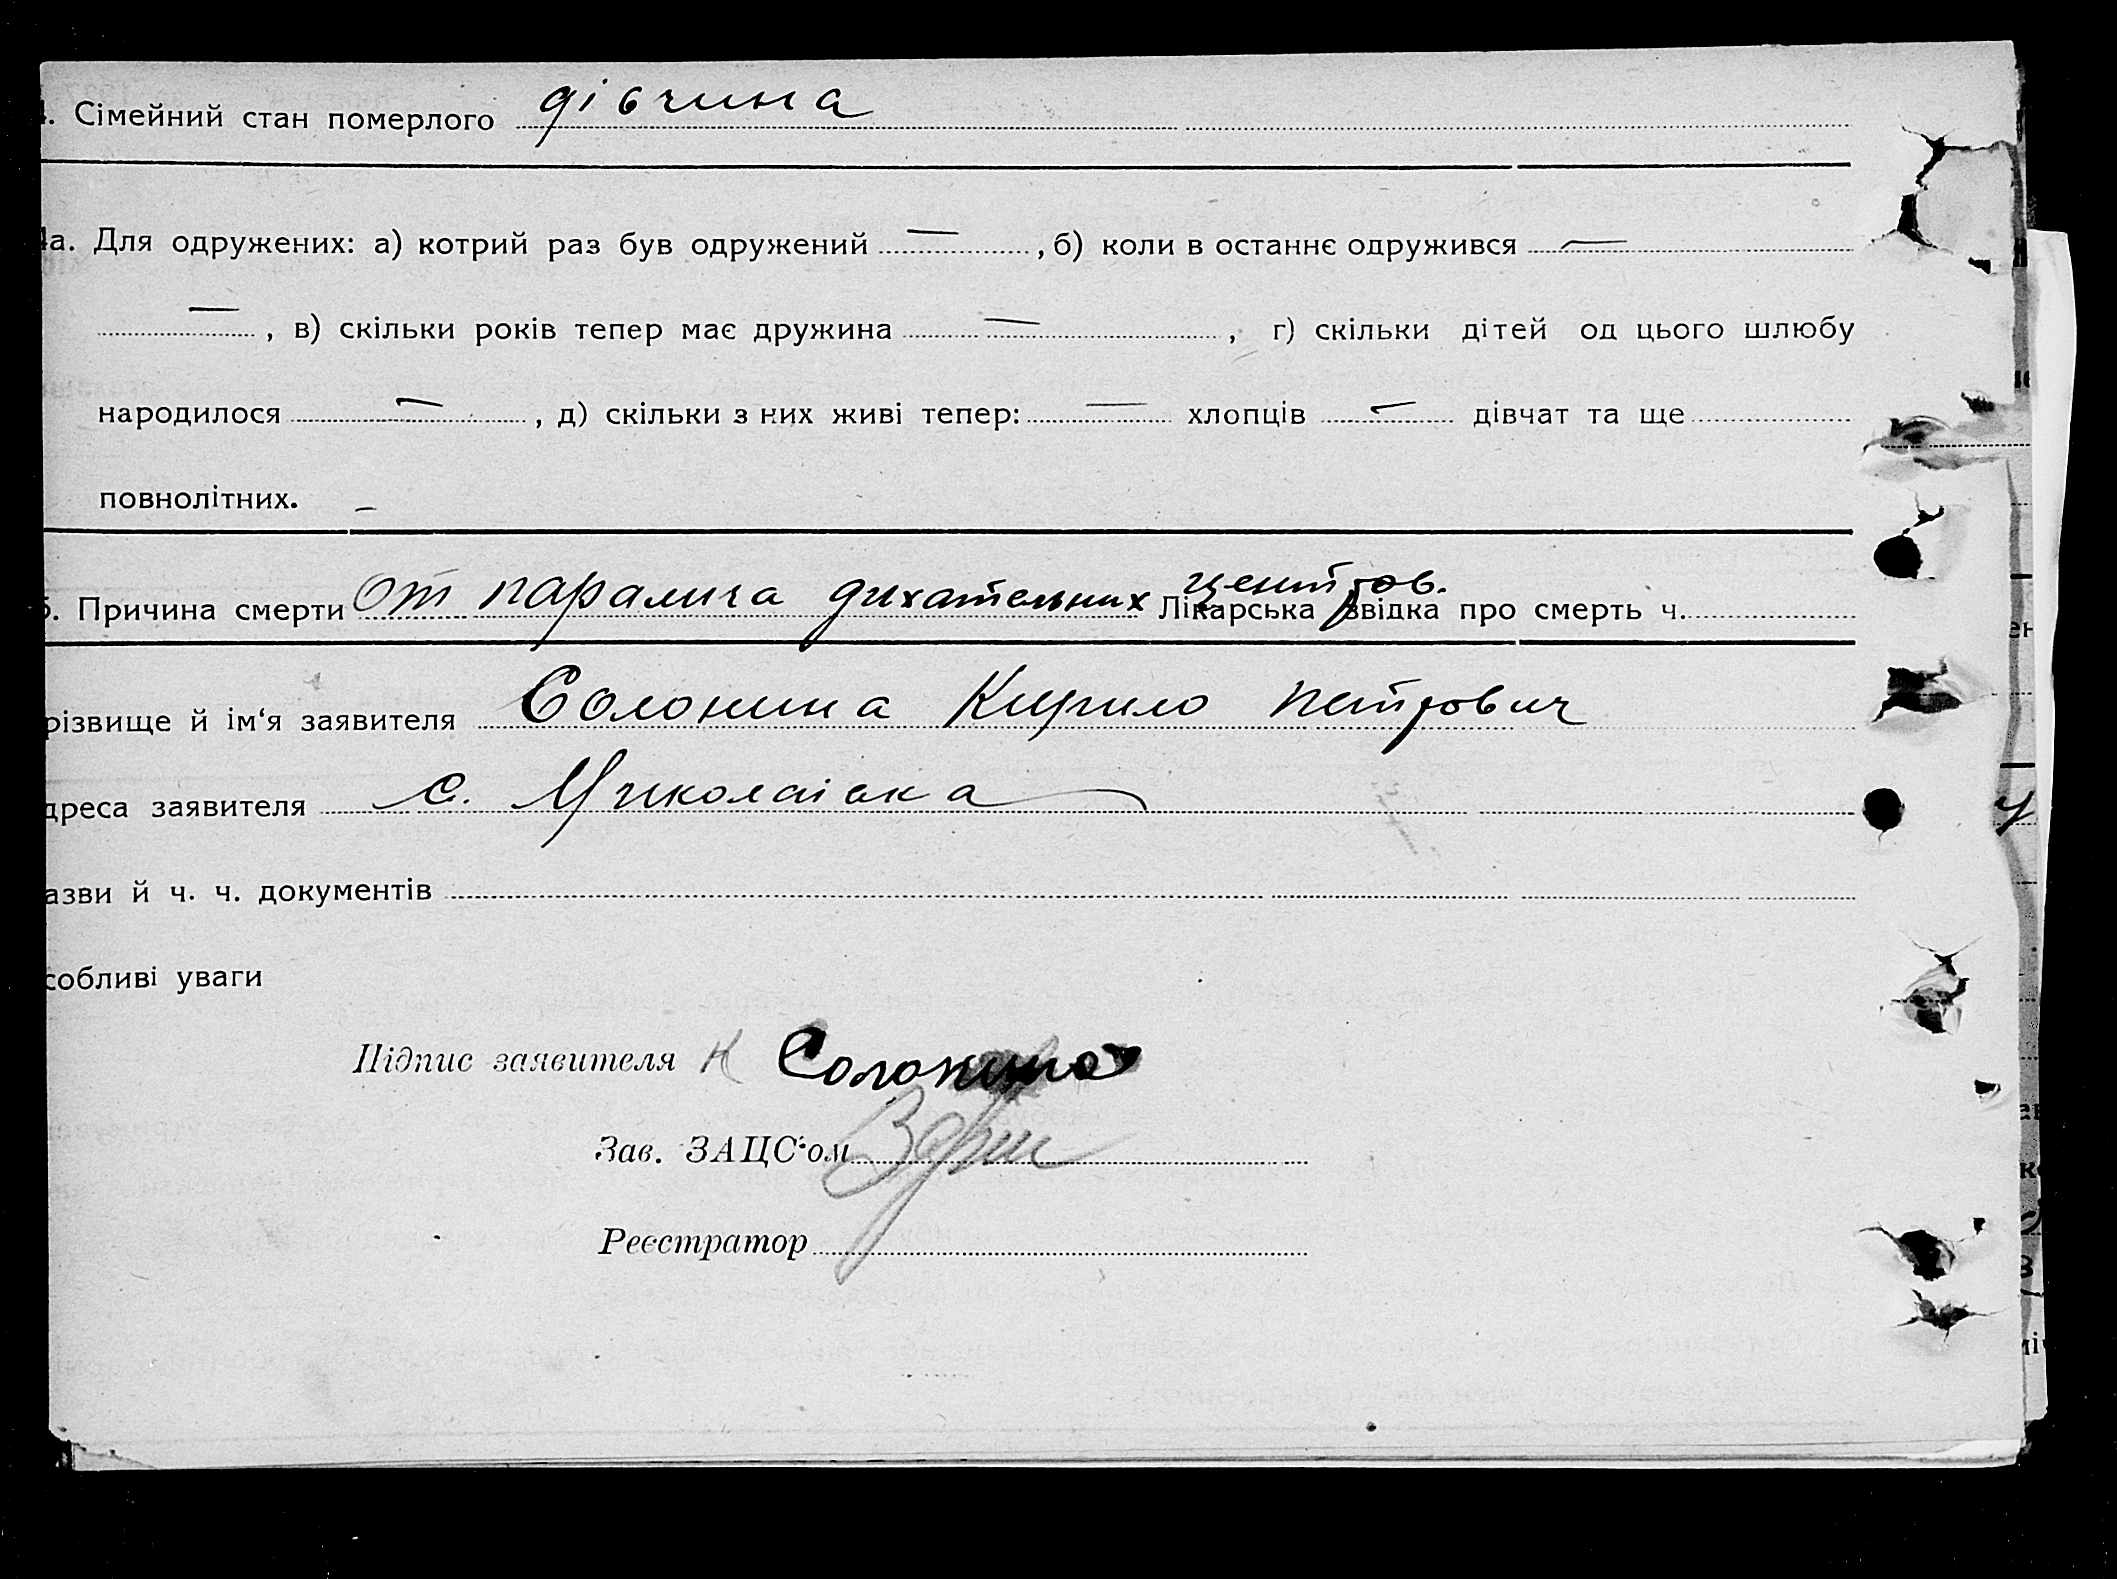 4. Сімейний стан померлого дівчина
4а. Для одружених: а) котрий раз був одружений —, б) коли в останнє одружився —
—, в) скільки років тепер має дружина —, г) скільки дітей од цього шлюбу
народилося —, д) скільки з них живі тепер: — хлопців — дівчат та ще
повнолітних. —
5. Причина смерти От паралича дихательних центров. Лікарська звідка про смерть ч.
різвище й ім‘я заявителя Солонина Кирило Петрович
дреса заявителя с. Миколаівка
азви й ч. ч. документів
собливі уваги
Підпис заявителя К Солонина
Зав. ЗАЦС‘ом
Реєстратор